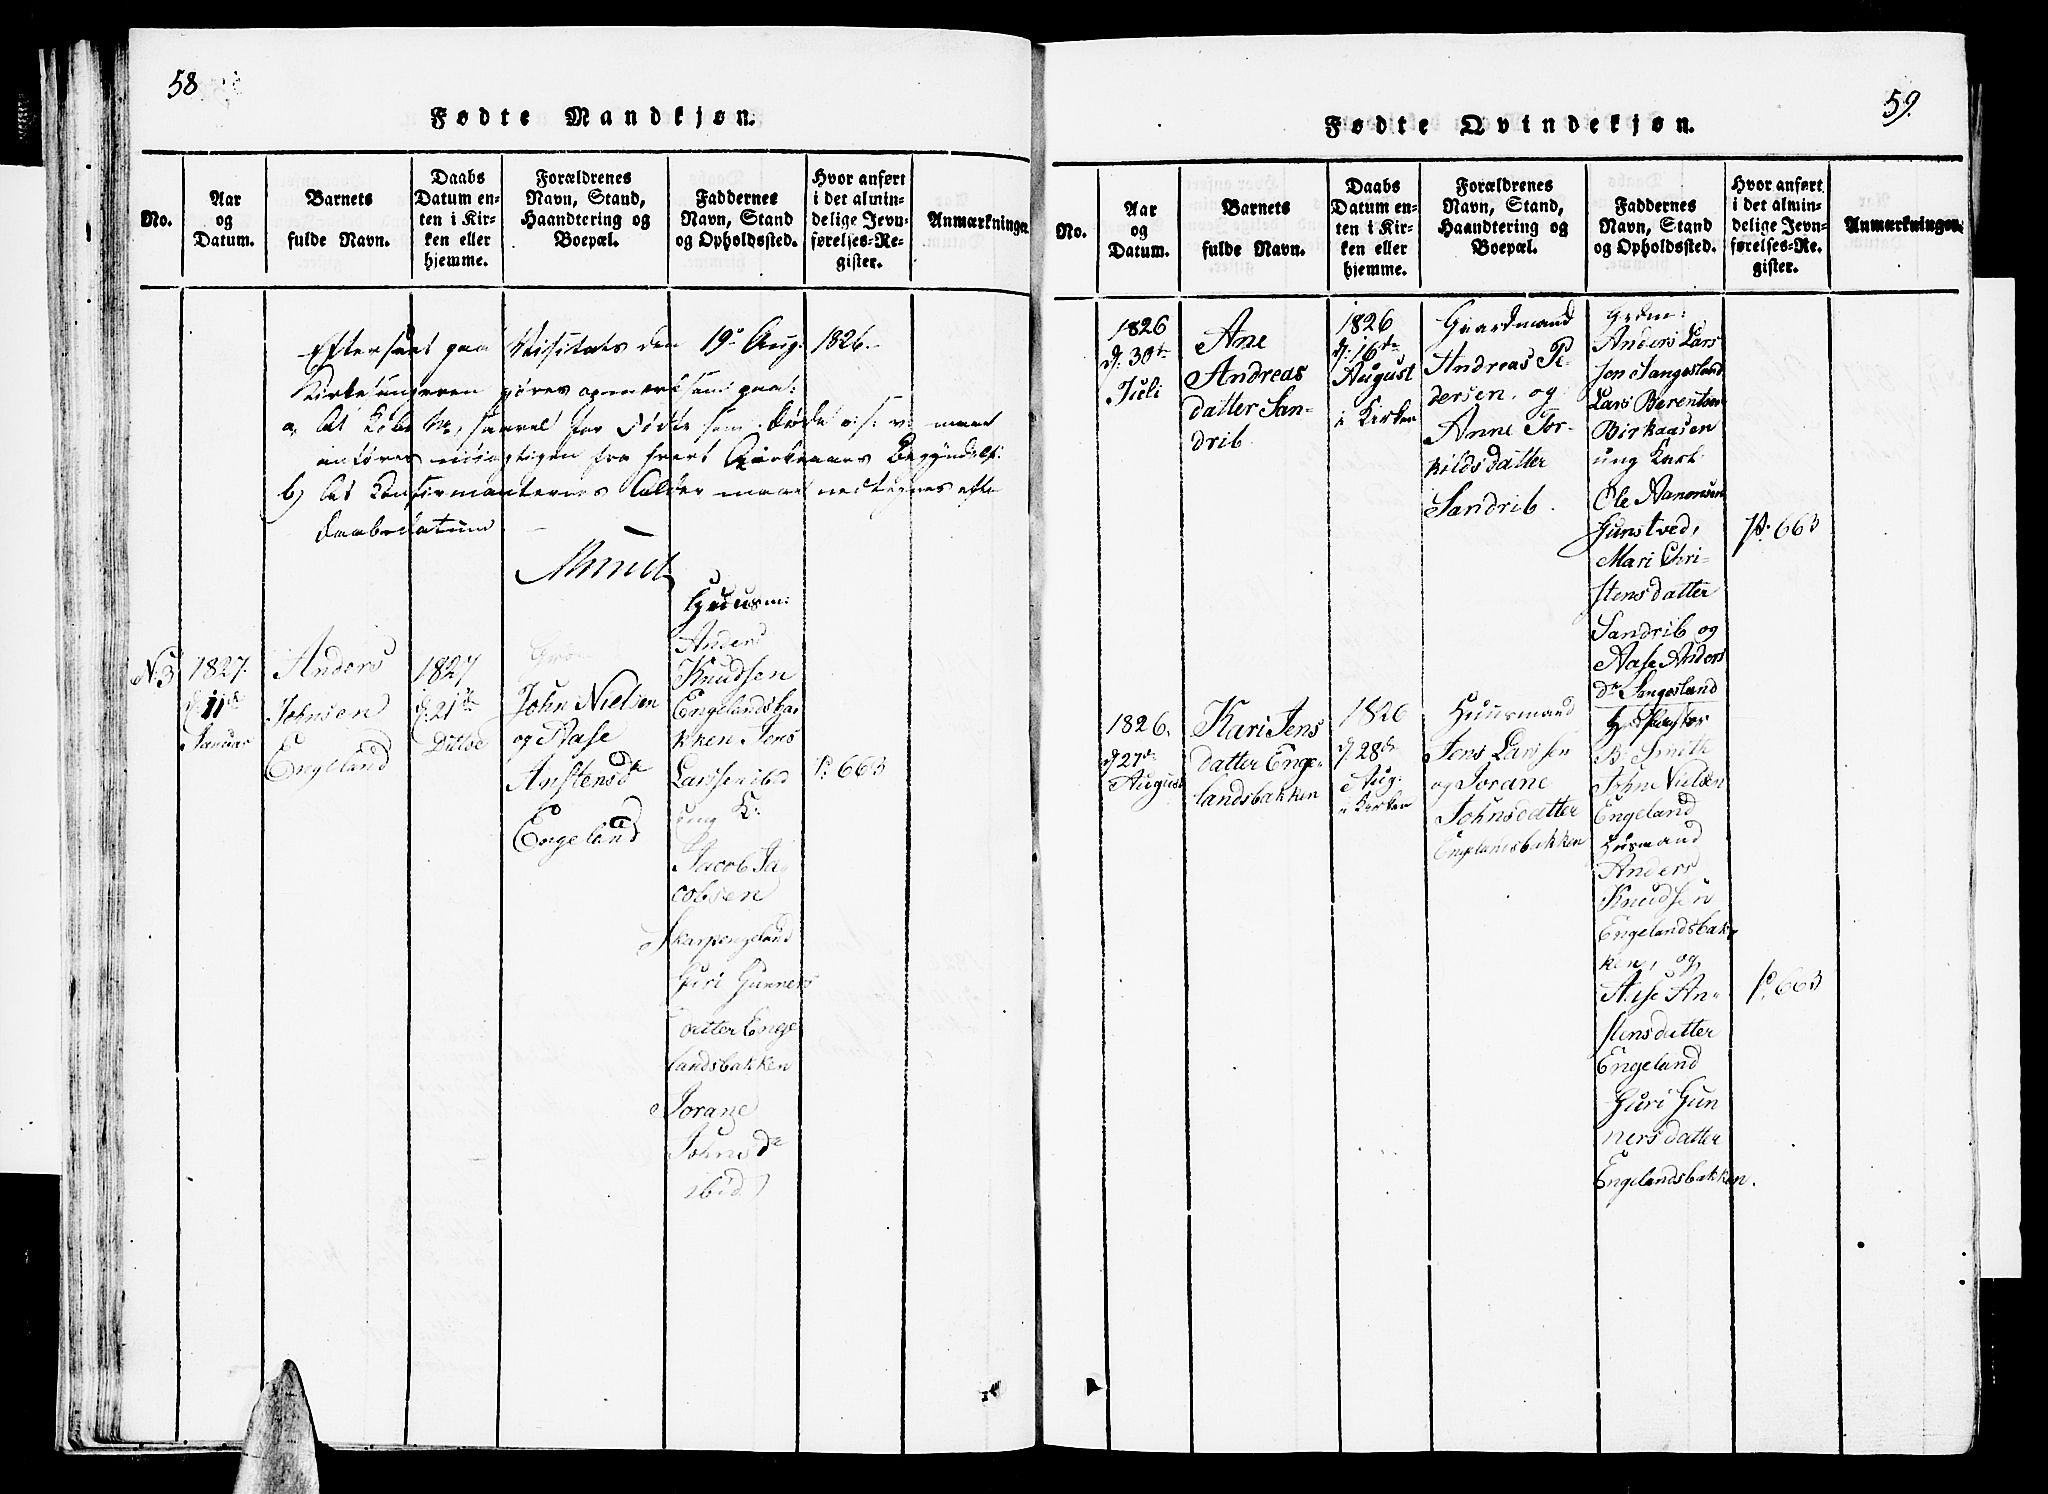 58
Fødte Mandkjøn.
No.
Aar
og
Datum.
Barnets
fulde Navn.
Daabs
Datum en-
ten i Kir-
ken eller
hjemme.
Forældrenes
Navn, Stand,
Haandtering og
Boepæl.
Faddernes
Navn, Stand
og Opholdssted.
Hvor anført
i det almin-
delige Jevn-
førelses-Re-
gister.
Anmærkninger.
Efterseet paa Visitats den 19de Aug. 1826.
Kirkesangeren gjøres opmærksom paa:
a, At Løbe No, saavel for Fødte som Døde o: s: v: maae
anføres nøiagtigen fra hvert Kirkeaars Begyndelse:
b) At Confirmanternes Alder maae nedtegnes efter
Daabsdatum
N: 3
1827.
d 11te
Januar
Anders
Johnsen
Engeland
1827
d. 21de
Ditto
Grdm
John Nielsen
og Aase
Anstensdr
Engeland
Huusm:
Anders
Knudsen
Engelandsba-
kken Jens
Larssen ibd
ung K:
Jacob Ja-
cobsen
Skarpengeland
Guri Gunners
datter Enge
landsbakken
Jorane
Johnsdr
ibid
P. 663
59.
Fødte Qvindekjøn.
No.
Aar
og
Datum.
Barnets
fulde Navn.
Daabs
Datum en-
ten i Kir-
ken eller
hjemme.
Forældrenes
Navn, Stand,
Haandtering og
Boepæl.
Faddernes
Navn, Stand
og Opholdssted.
Hvor anført
i det almin-
delige Jevn-
førelses-Re-
gister.
Anmærkninger.
1826
d. 30te
Juli
Ane
Andreas
datter San-
drib
1826
d. 16de
August
i Kirken
Gaardmand
Andreas Pe-
dersen, og
Anne Tor-
kildsdatter
Sandrib.
Grdm:
Anders Lars
sen Sangesland
Lars Berentsen
Birkaasen
ung Karl
Ole Aanonsen
Hunstved,
Mari Chri-
stensdatter
Sandrib og
Aase Anders
dr Sangesland
P. 663
1826.
d 27de
August
Kari Jens
datter Enge-
landsbakken
1826
d. 28de
Aug:
i Kirken
Huusmand
Jens Larssen
og Jorane
Johnsdatter
Engelandsbakken
B. Smith
John Nielsen
Engeland
Huusmand
Anders
Knudsen
Engelandsbak-
ken, og,
Aase An-
stensdatter
Engeland
Guri Gun
nersdatter
Engelandsbakken.
P. 663